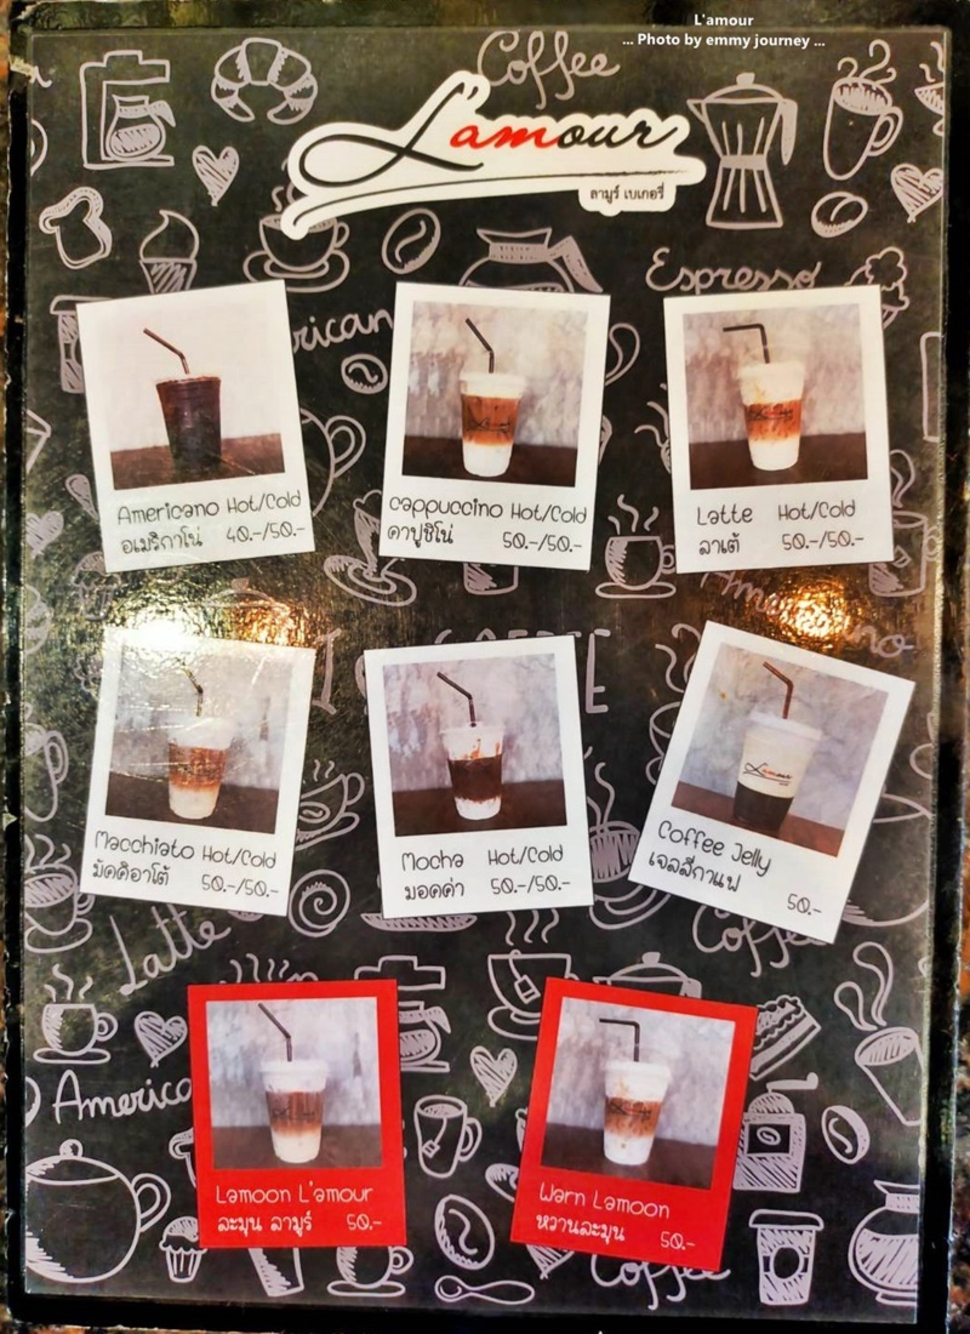 L'amour
... Photo by emmy journey ...
Coffee
L'amour
ลามูร์ เบเกอรี่
Espresso
rican
Americano Hot/Cold
อเมริกาโน่ 40.-/50.-
cappuccino Hot/Cold
คาปูชิโน่ 50.-/50.-
Latte Hot/Cold
ลาเต้ 50.-/50.-
Macchiato Hot/Cold
มัคคิอาโต้ 50.-/50.-
Mocha Hot/Cold
มอคค่า 50.-/50.-
Coffee Jelly
เจลลี่กาแฟ
50.-
Latte
Coffee
America
Lamoon L'amour
ละมุน ลามูร์ 50.-
Warn Lamoon
หวานละมุน 50.-
Coffee